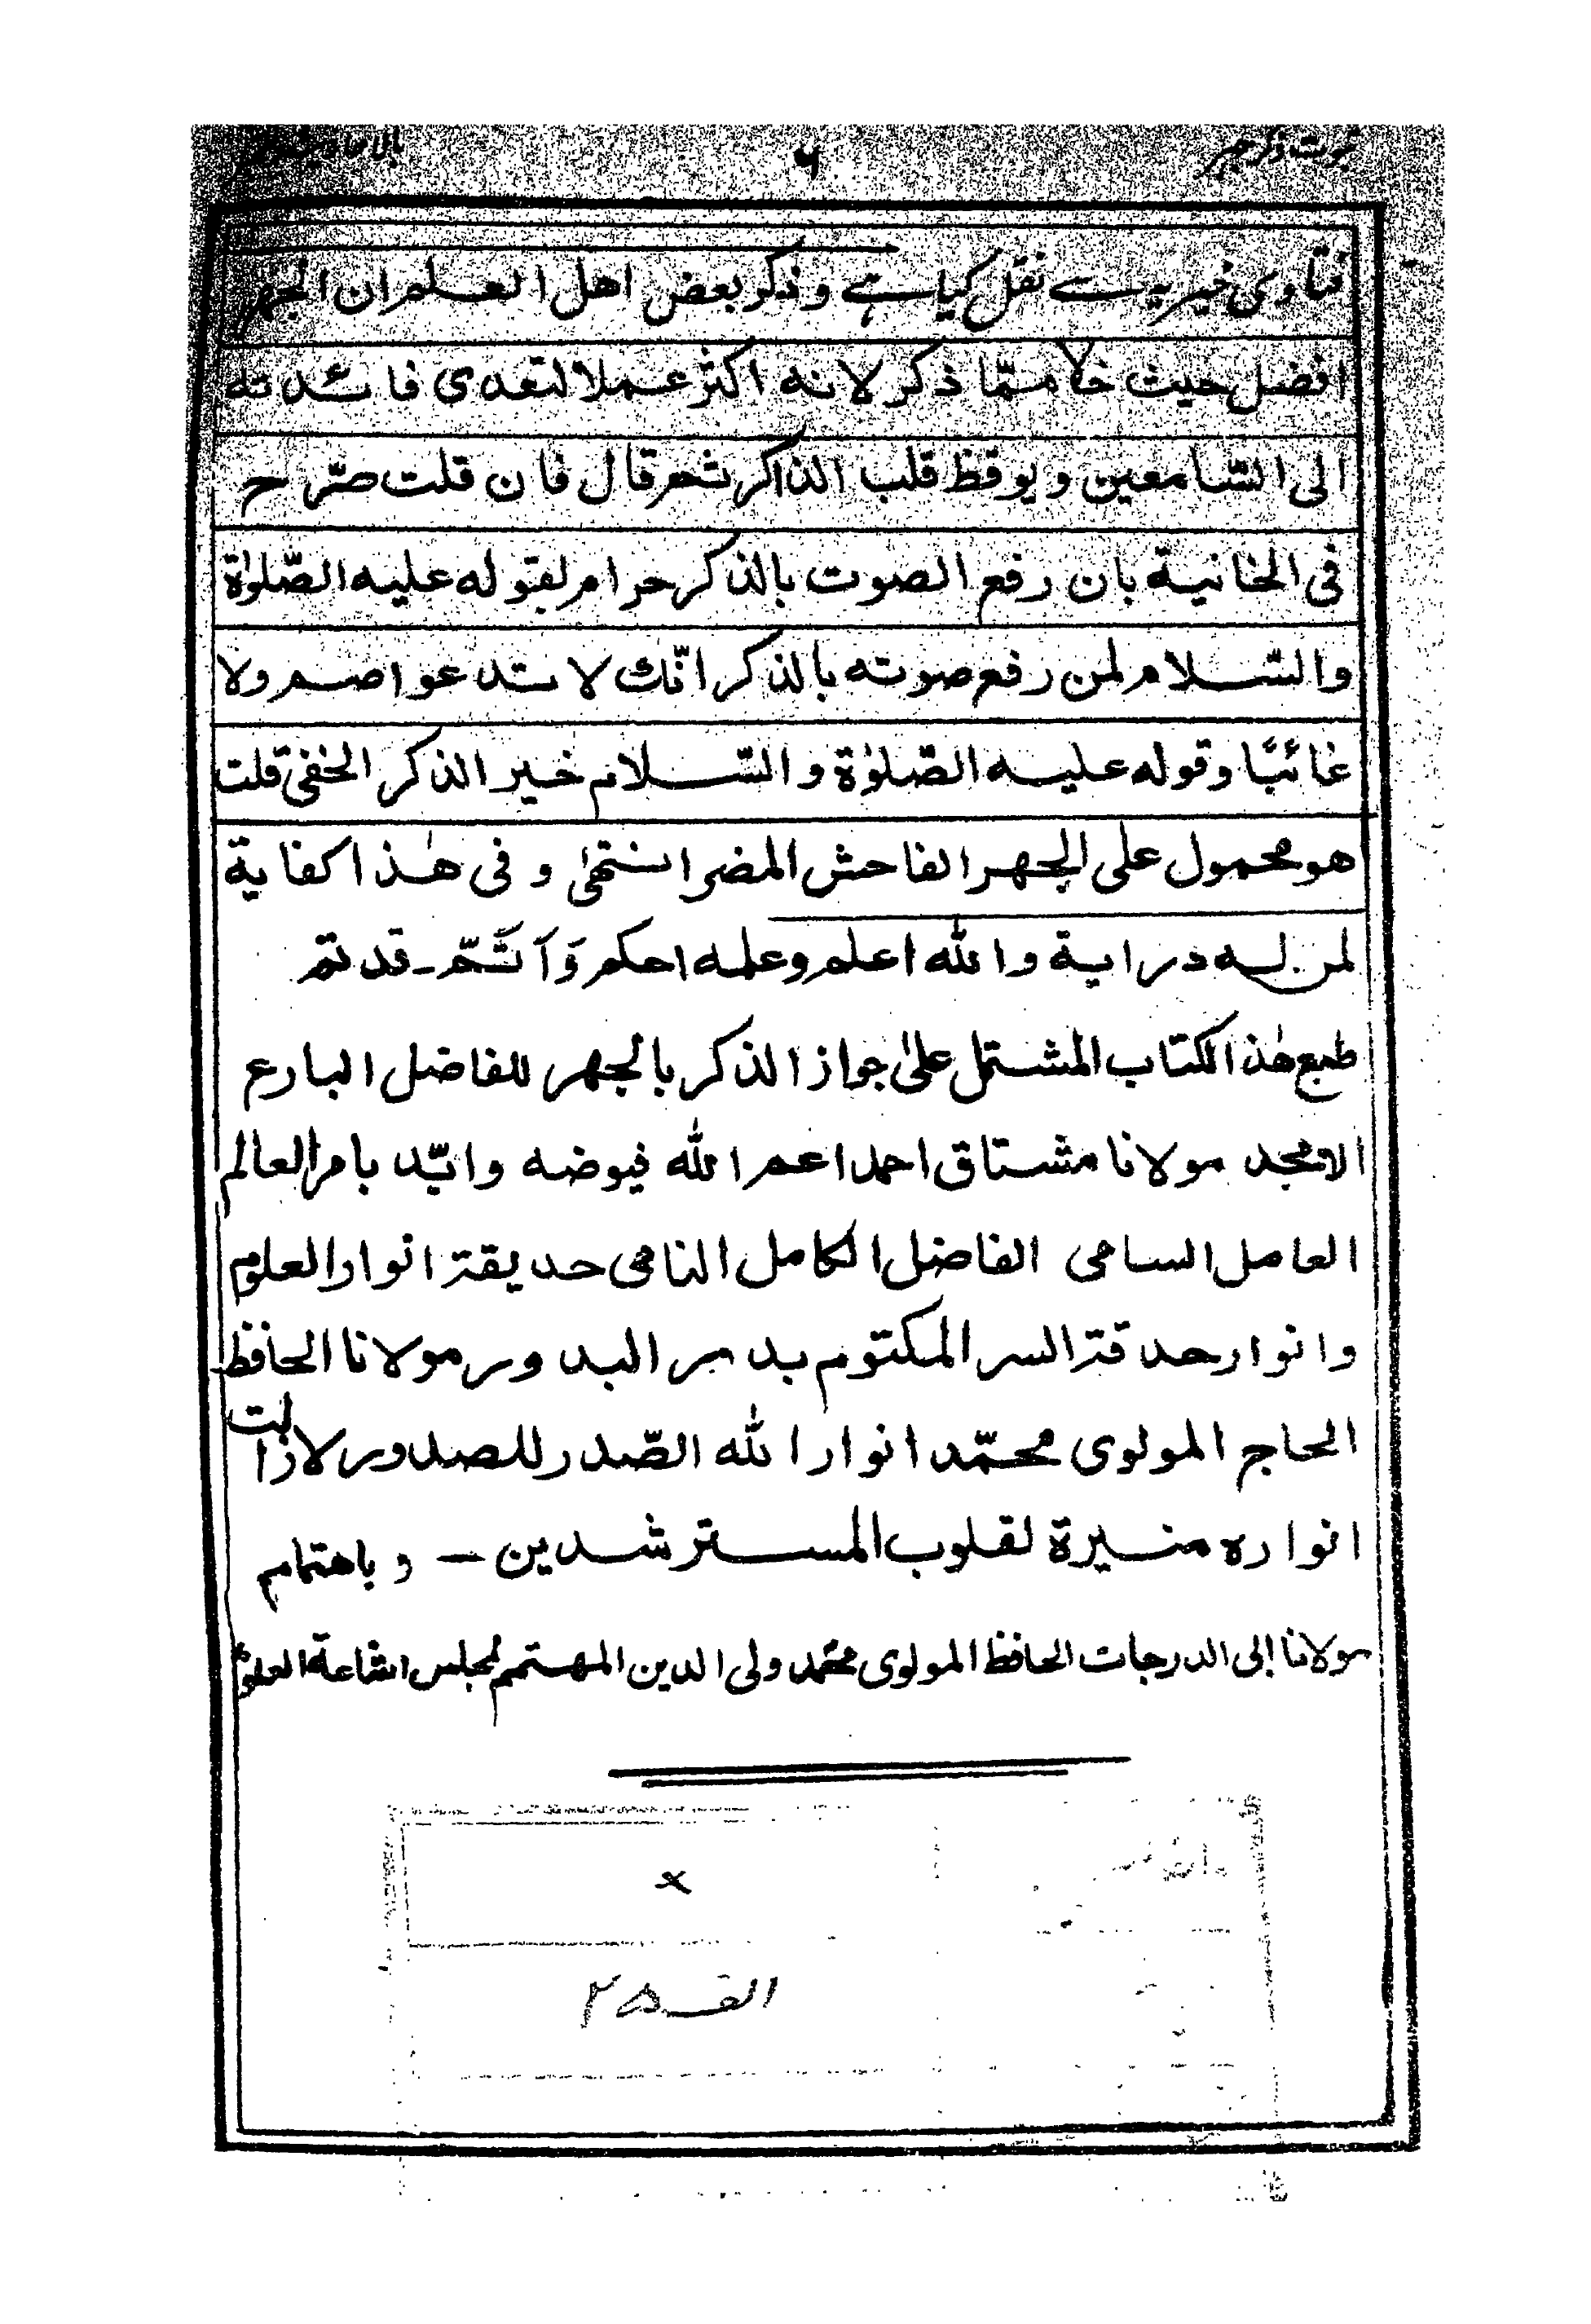 ثبوت ذکر جہر ٦
فتاوی خیریہ سے نقل کیا ہے وذكر بعض اهل العلم ان الجهر
افضل حیث خلا ممّا ذكر لانه اكثر عملا لتعدی فائدته
الی السّامعین ویوقظ قلب الذاكر ثم قال فان قلت صرّح
فی الخانیة بان رفع الصوت بالذكر حرام لقوله علیه الصّلوٰة
والسّلام لمن رفع صوته بالذكر انّك لا تدعو اصم ولا
غائبًا وقوله علیه الصّلوٰة والسّلام خیر الذكر الخفی قلت
هو محمول علی الجهر الفاحش المضر انتهیٰ وفی هٰذا كفایة
لمن له درایة والله اعلم وعلمه احكم وَاَتَمّ ۔ قد تم
طبع هٰذا الكتاب المشتمل علیٰ جواز الذكر بالجهر للفاضل البارع
الامجد مولانا مشتاق احمد اعم الله فیوضه وایّد بامر العالم
العامل السامی الفاضل الكامل النامی حدیقة انوار العلوم
وانوار حدقة السر المكتوم بدر البدور مولانا الحافظ
الحاج المولوی محمّد انوار الله الصّدر للصدور لازالت
انواره منیرة لقلوب المسترشدین — وباهتمام
مولانا إلی الدرجات الحافظ المولوی محمّد ولی الدین المهتمم لمجلس اشاعة العلوم
×
الف ۲۵